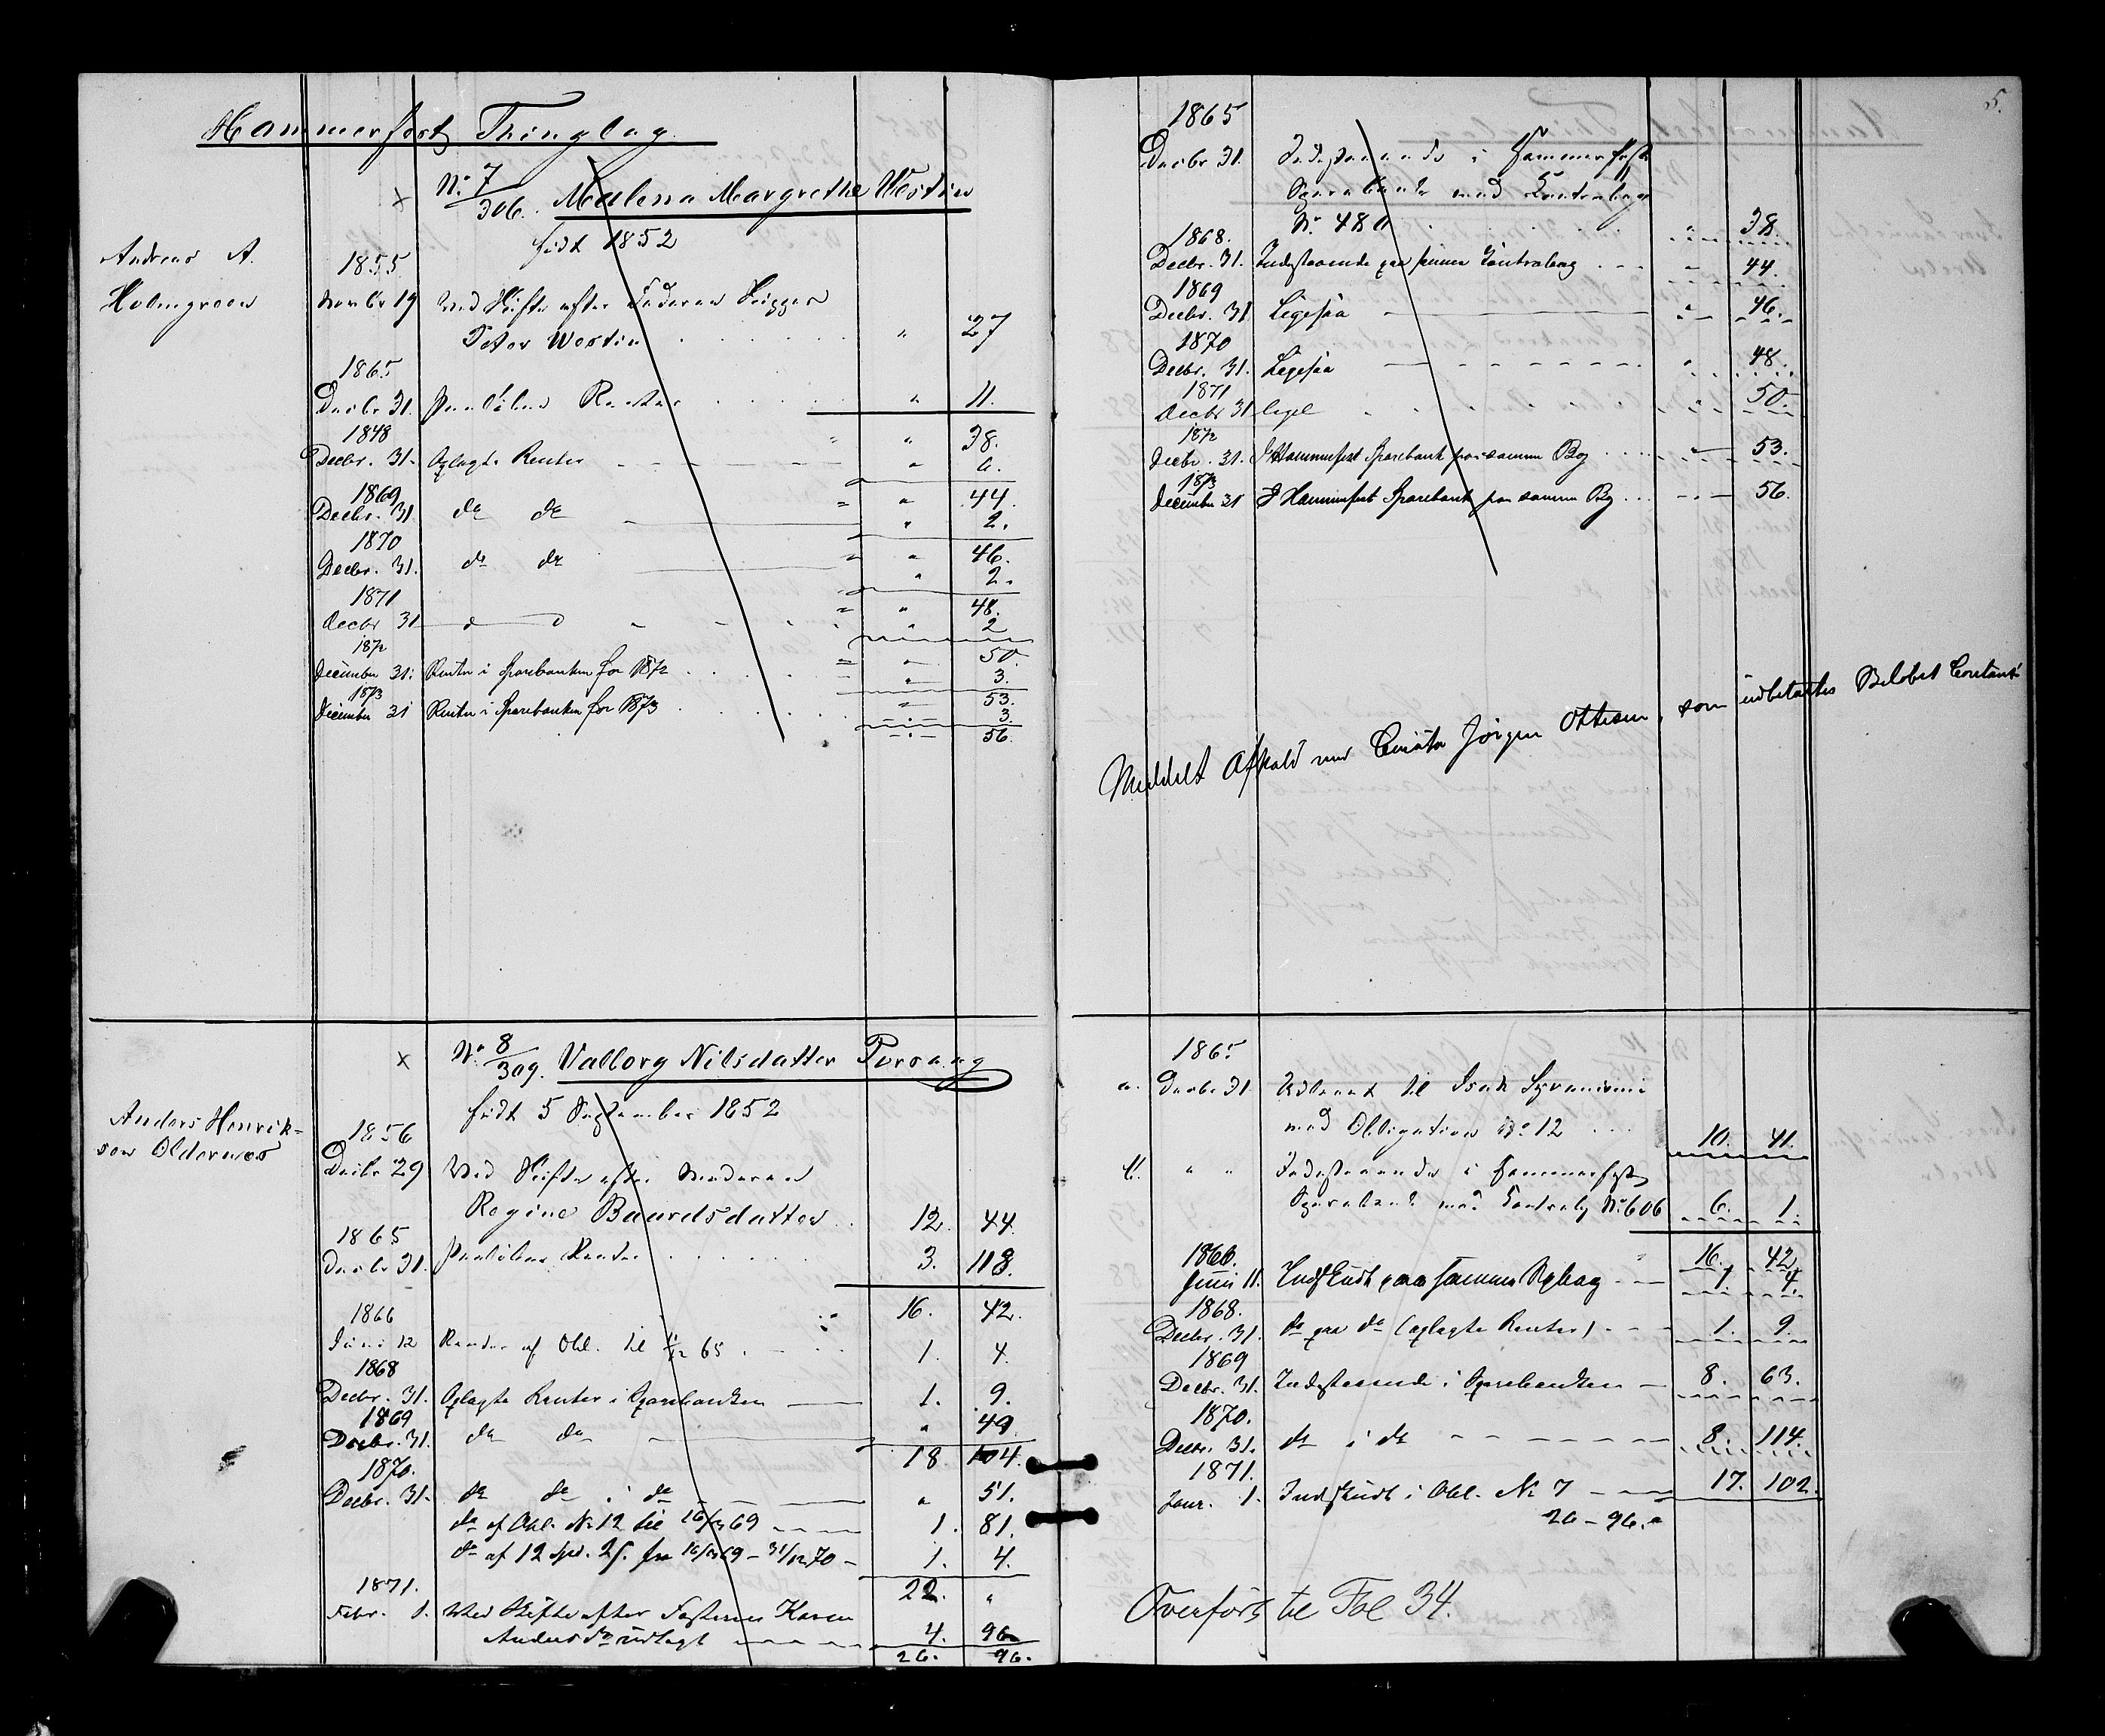 Hammerfest Thinglag.
× No 7/306. Malena Margrethe Westin
født 1852
Andreas A.
Holmgreen
1855
Novbr 19 Ved Skifte efter Faderen Skipper
Peter Westin . . . . . " 27
1865
Decbr 31. paaløbne Renter . . . . . " 11.
" 38.
1848
Decbr. 31. Oplagte Renter " 6.
" 44.
1869
Decbr. 31 do do " 2.
" 46.
1870
Decbr. 31. do do " 2.
" 48.
1871
Decbr 31 d o " 2
" 50.
1872
December 31. Renter i Sparebanken for 1872 . . . " 3.
" 53.
1873
December 31 Renter i Sparebanken for 1873 . . . 3.
56.
× No 8/309. Valborg Nilsdatter Porsang
født 5 September 1852
Anders Henrik-
sen Oldernes
1856
Decbr 29 Ved Skifte efter Moderen
Regine Baardsdatter . 12. 44.
1865
Decbr 31. paaløbne Renter . . . 3. 118.
16. 42.
1866
Juni 12 Renter af Obl. til 65 . 1. 4.
1868
Decbr. 31. Oplagte Renter i Sparebanken 1. 9.
1869
Decbr. 31. do do " 49.
18. 104.
1870.
Decbr. 31. do do i do " 51.
do af Obl. No 12 til 69 1. 81.
do af 12 Spd. 2 s. fra 69 - 31/12 70 - 1. 4.
22. "
1871.
Febr. 1. Ved Skifte efter Fasteren Karen
Andersdr udlagt 4. 96.
26. 96.
5.
1865
Decbr 31. Indestaaende i Hammerfest
Sparebank med Contrabog
No 480 . . . . . " 38.
1868.
Decbr. 31. Indestaaende paa samme Contrabog . . . " 44.
1869
Decbr. 31. Ligesaa " 46.
1870
Decbr. 31. Ligesaa " 48.
1871
Decbr 31 ligel . . . . . 50.
1872
Decbr. 31. I Hammerfest Sparebank paa samme Bog . . . 53.
1873
December 31 I Hammerfest Sparebank paa samme Bog . . . 56.
Meddelt Afkald ved Curator Jørgen Ottesen, som udbetaltes Beløbet Contant
1865
a. Decbr 31. Udlaant til Isak
med Obligation No 12 . . . 10. 41.
b. " " Indestaaende i Hammerfest
Sparebank med Contrabog No 606 6. 1.
16. 42.
1866.
Juni 11. Indskudt paa samme Spbog 1. 4.
1868.
Decbr. 31. do paa do (oplagte Renter) 1. 9.
1869
Decbr. 31. Indestaaende i Sparebanken 8. 63.
1870.
Decbr. 31. do i do 8. 114.
1871.
Janr. 1. Indskudt i Obl. No 7 17. 102.
26 - 96.
Overført til Fol 34.